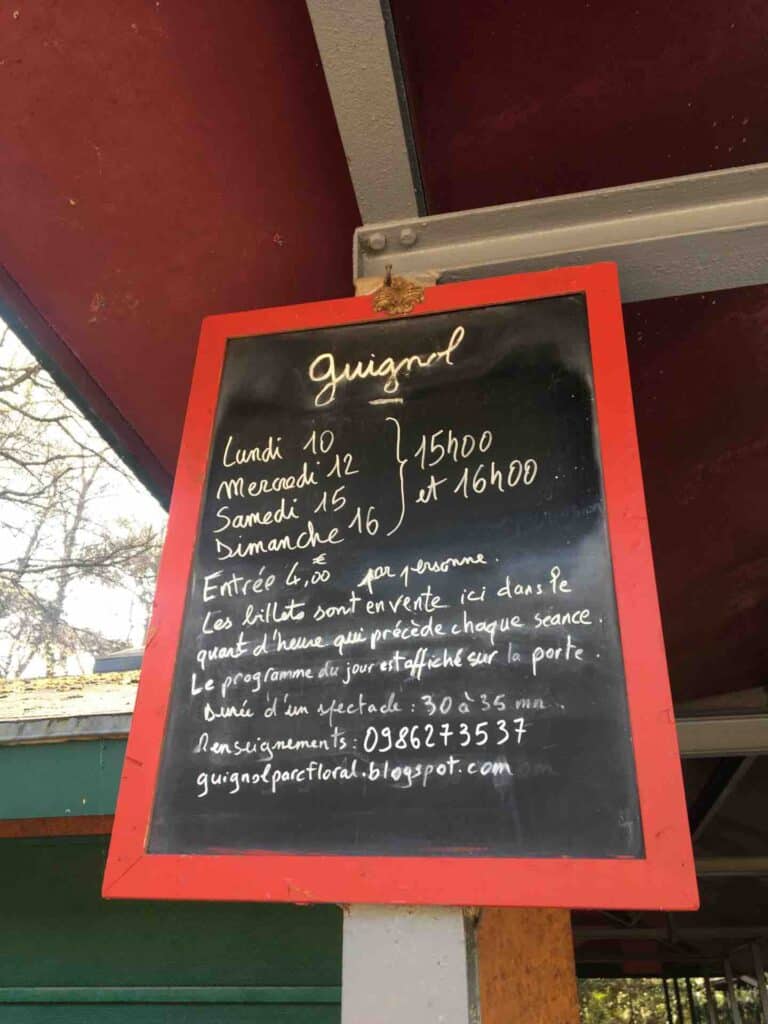 Guignol
Lundi 10
Mercredi 12
Samedi 15
Dimanche 16
15h00
et 16h00
Entrée 4,00€ par personne.
Les billets sont en vente ici dans le
quart d'heure qui précède chaque séance.
Le programme du jour est affiché sur la porte.
Durée d'un spectacle : 30 à 35 mn.
Renseignements : 0986273537
guignolparcfloral.blogspot.com